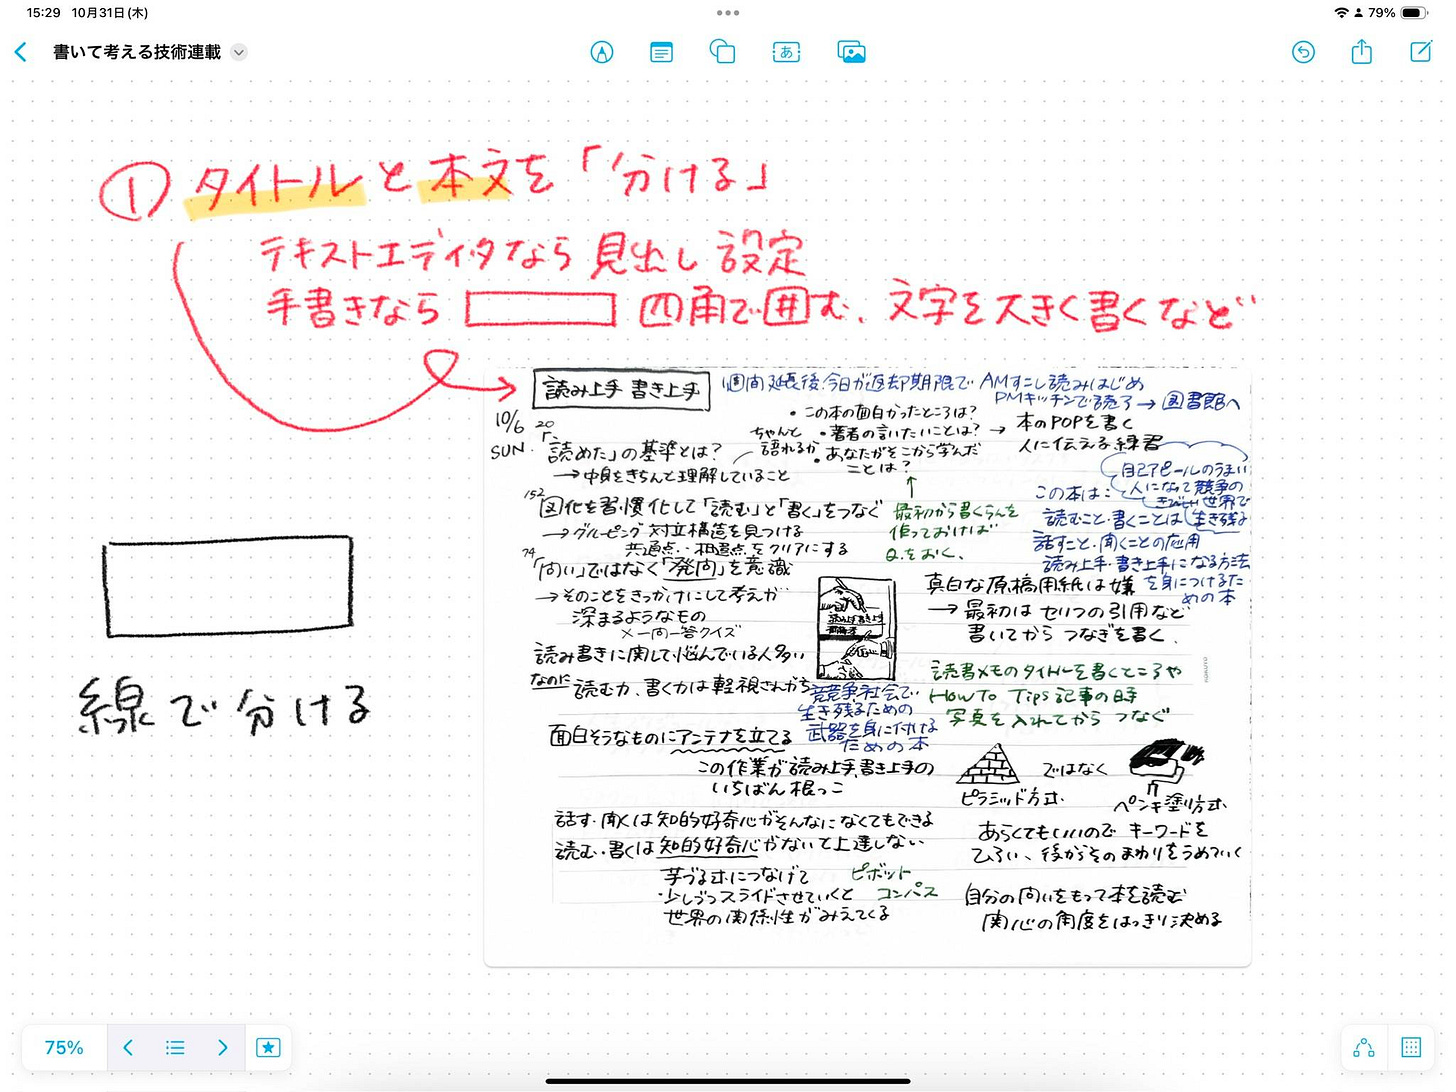 15:29 10月31日(木)
79%
書いて考える技術連載
① タイトルと本文を「分ける」
テキストエディタなら見出し設定
手書きなら 四角で囲む、文字を大きく書くなど
線で分ける
読み上手 書き上手
1週間延長後、今日が返却期限で AMすこし読みはじめ
PMキッチンで読了→図書館へ
10/6
SUN.
・この本の面白かったところは?
ちゃんと ・著者の言いたいことは?→
語れるか ・あなたがそこから学んだ
ことは?
本のPOPを書く
人に伝える練習
20
「読めた」の基準とは?
→中身をきちんと理解していること
152
図化を習慣化して「読む」と「書く」をつなぐ
→グルーピング 対立構造を見つける
共通点・相違点をクリアにする
最初から書くらんを
作っておけば
Q.をおく、
自己アピールのうまい
人になって競争の
きびしい世界で
生き残る
この本は:
読むこと・書くことは
話すこと・聞くことの応用
読み上手・書き上手になる方法
を身につけるた
めの本
74
「問い」ではなく「発問」を意識
→そのことをきっかけにして考えが
深まるようなもの
×一問一答クイズ
読み書きに関して悩んでいる人多い
なのに 読む力、書く力は軽視されがち
競争社会で
生き残るための
武器を身に付ける
ための本
真白な原稿用紙は嫌
→最初は せりふの引用など
書いてから つなぎを書く、
読書メモのタイトルを書くところや
HowTo Tips記事の時
写真を入れてから つなぐ
面白そうなものにアンテナを立てる
この作業が読み上手、書き上手の
いちばん根っこ
ピラミッド方式
ではなく
ペンキ塗り方式
話す・聞くは知的好奇心がそんなになくてもできる
読む・書くは知的好奇心がないと上達しない
あらくてもいいので キーワードを
ひろい、後からそのまわりをうめていく
芋づる式につなげて
少しづつスライドさせていくと
世界の関係性がみえてくる
ピボット
コンパス
自分の問いをもって本を読む
関心の角度をはっきり決める
75%